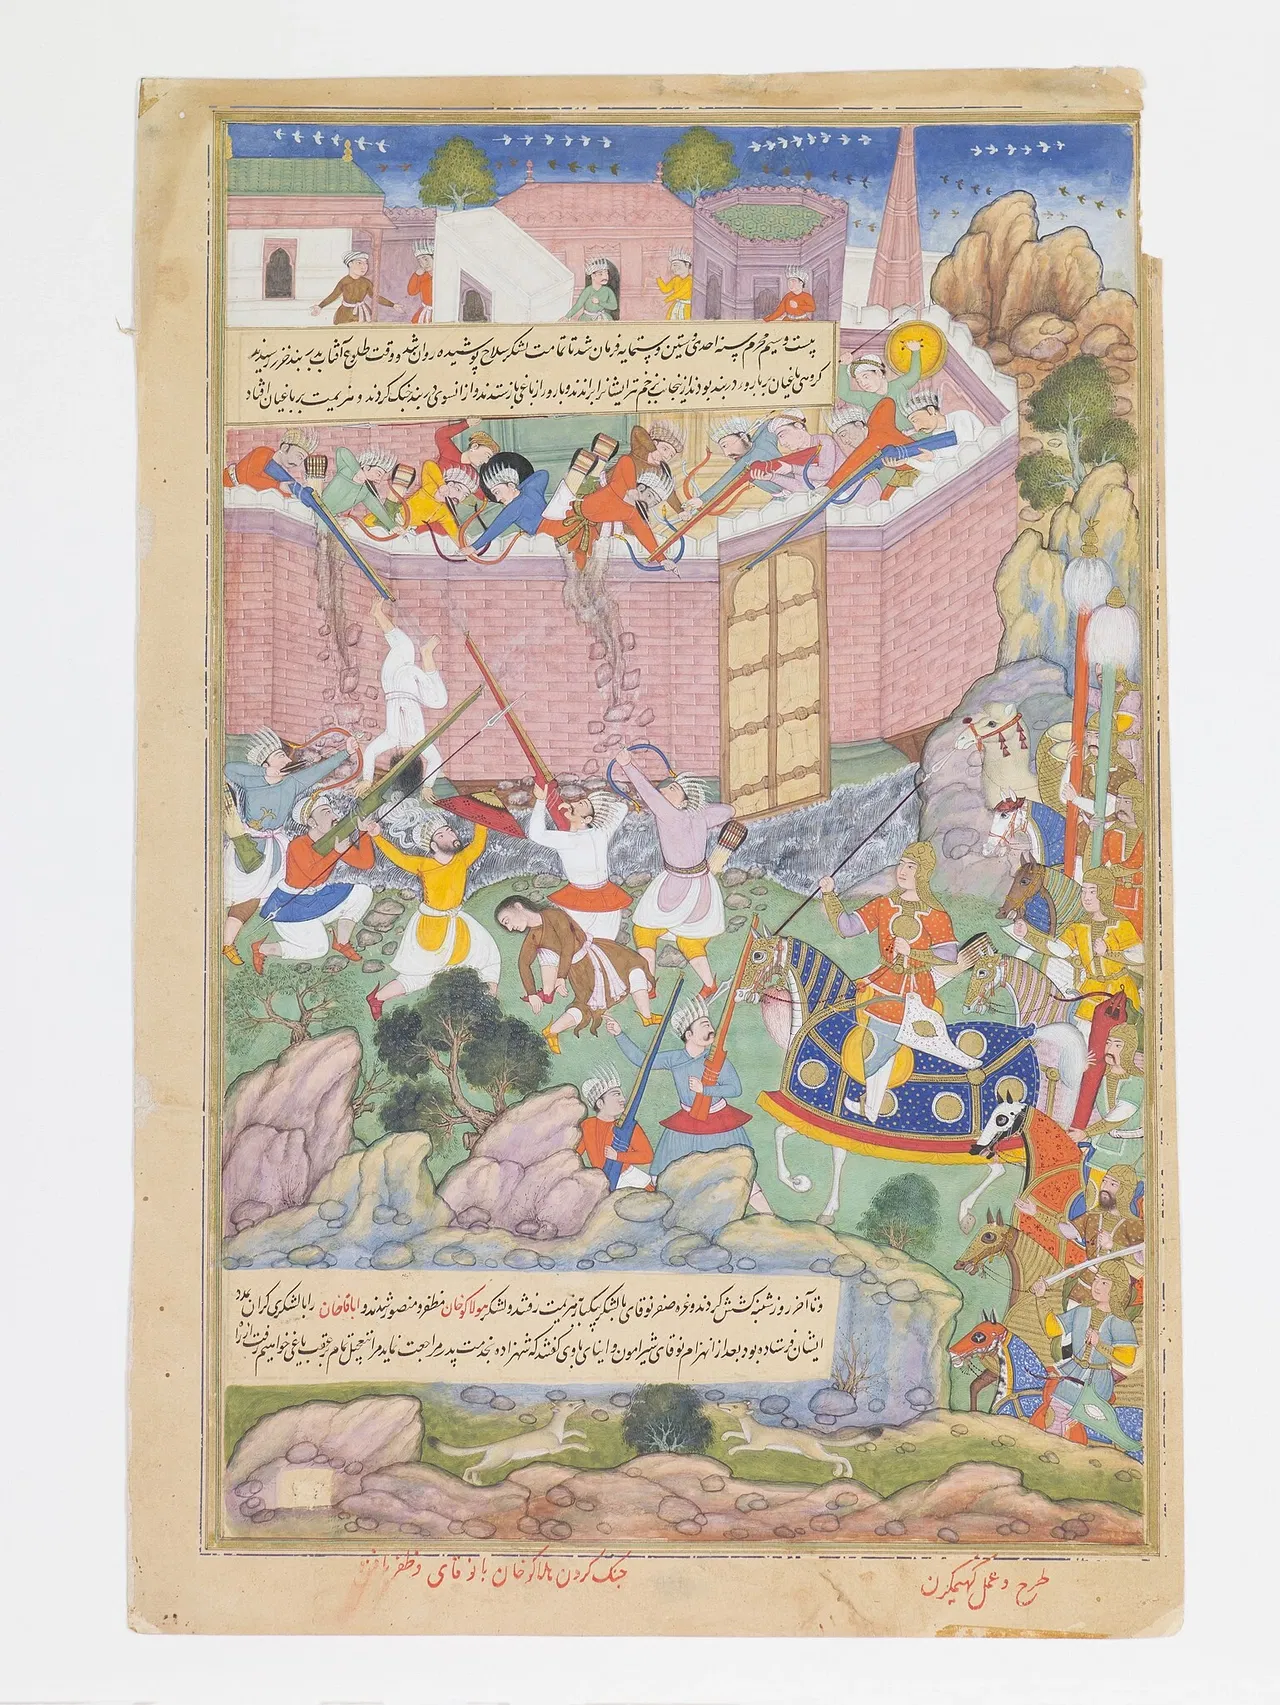 بیست و سیم محرم سنه احدی و ستین و ستمایه فرمان شد تا تمامت لشکر سلاح پوشیده روان شد و وقت طلوع آفتاب بدربند خزر رسیدند
گروهی یاغیان بر بارو دربند بودند از اینجانب بزخم تیر ایشانرا براندند و بارو از یاغی بازستدند و از انسوی دربند جنگ کردند و هزیمت بر یاغیان افتاد
و تا آخر روز شنبه کشش کردند و غره صفر نوقای با لشکر بیکبار بهزیمت رفتند و لشکر هولاکو خان مظفر و منصور شدند و اباقاخان را با لشکری گران بمدد
ایشان فرستاده بود بعد از انهزام نوقای شیرامون و ابتای باوی گفتند که شهزاده بخدمت پدر مراجعت نماید ما بتعجیل تمام عقب یاغی خواهیم رفت از راه
جنگ کردن هلاکو خان با نوقای و ظفر یافتن
طرح و عمل کهیمکرن